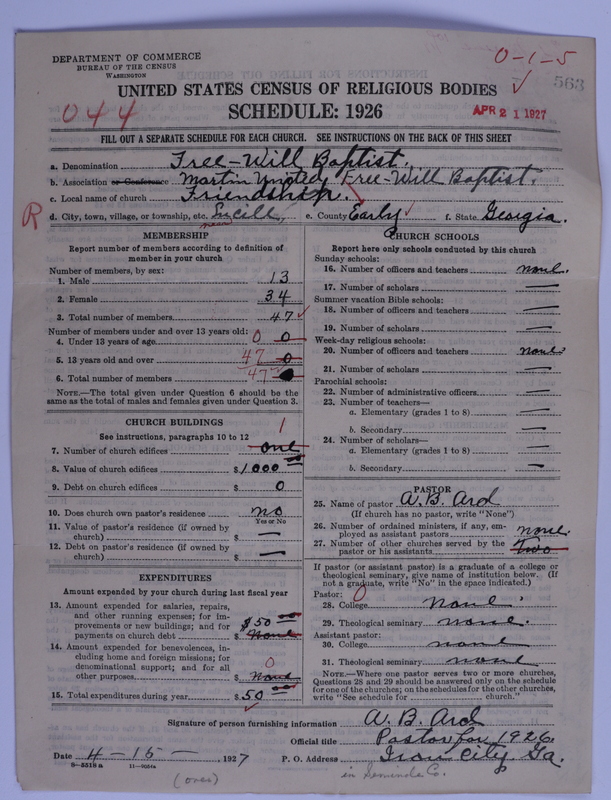 DEPARTMENT OF COMMERCE
BUREAU OF THE CENSUS
WASHINGTON
0-1-5
563
UNITED STATES CENSUS OF RELIGIOUS BODIES
044
SCHEDULE: 1926
APR 21 1927
FILL OUT A SEPARATE SCHEDULE FOR EACH CHURCH. SEE INSTRUCTIONS ON THE BACK OF THIS SHEET
a. Denomination Free-Will Baptist.
b. Association or Conference Martin United Free-Will Baptist.
c. Local name of church Friendship.
R
d. City, town, village, or township, etc. near e. County Early f. State Georgia.
MEMBERSHIP
Report number of members according to definition of
member in your church
Number of members, by sex:
1. Male 13
2. Female 34
3. Total number of members 47
Number of members under and over 13 years old:
4. Under 13 years of age 0 0
5. 13 years old and over 47 0
6. Total number of members 47
NOTE.—The total given under Question 6 should be
same as the total of males and females given under Question 3.
CHURCH BUILDINGS
See instructions, paragraphs 10 to 12
1
7. Number of church edifices one
8. Value of church edifices $1000
9. Debt on church edifices $ 0
10. Does church own pastor's residence no
Yes or No
11. Value of pastor's residence (if owned by
church) $ —
12. Debt on pastor's residence (if owned by
church) $ —
EXPENDITURES
Amount expended by your church during last fiscal year
13. Amount expended for salaries, repairs,
and other running expenses; for im-
provements or new buildings; and for $50
payments on church debt $ None
14. Amount expended for benevolences, in-
cluding home and foreign missions; for
denominational support; and for all 0
other purposes $ None
15. Total expenditures during year $50
CHURCH SCHOOLS
Report here only schools conducted by this church
Sunday schools:
16. Number of officers and teachers none.
17. Number of scholars —
Summer vacation Bible schools:
18. Number of officers and teachers —
19. Number of scholars —
Week-day religious schools:
20. Number of officers and teachers none
21. Number of scholars —
Parochial schools:
22. Number of administrative officers —
23. Number of teachers—
a. Elementary (grades 1 to 8) —
b. Secondary —
24. Number of scholars—
a. Elementary (grades 1 to 8) —
b. Secondary —
PASTOR
25. Name of pastor A. B. Ard
(If church has no pastor, write "None")
26. Number of ordained ministers, if any, em-
ployed as assistant pastors none.
27. Number of other churches served by the
pastor or his assistants Two
If pastor (or assistant pastor) is a graduate of a college or
theological seminary, give name of institution below. (If
not a graduate, write "No" in the space indicated.)
Pastor: 0
28. College none.
29. Theological seminary none.
Assistant pastor:
30. College none
31. Theological seminary none
NOTE.—Where one pastor serves two or more churches,
Questions 28 and 29 should be answered only on the schedule
for one of the churches; on the schedules for the other churches,
write "See schedule for church."
Signature of person furnishing information A. B. Ard
Official title Pastor for 1926.
Date 4-15- 1927 P. O. Address Iron City, Ga.
8-5518a 11-9054a
(over)
in Seminole C.